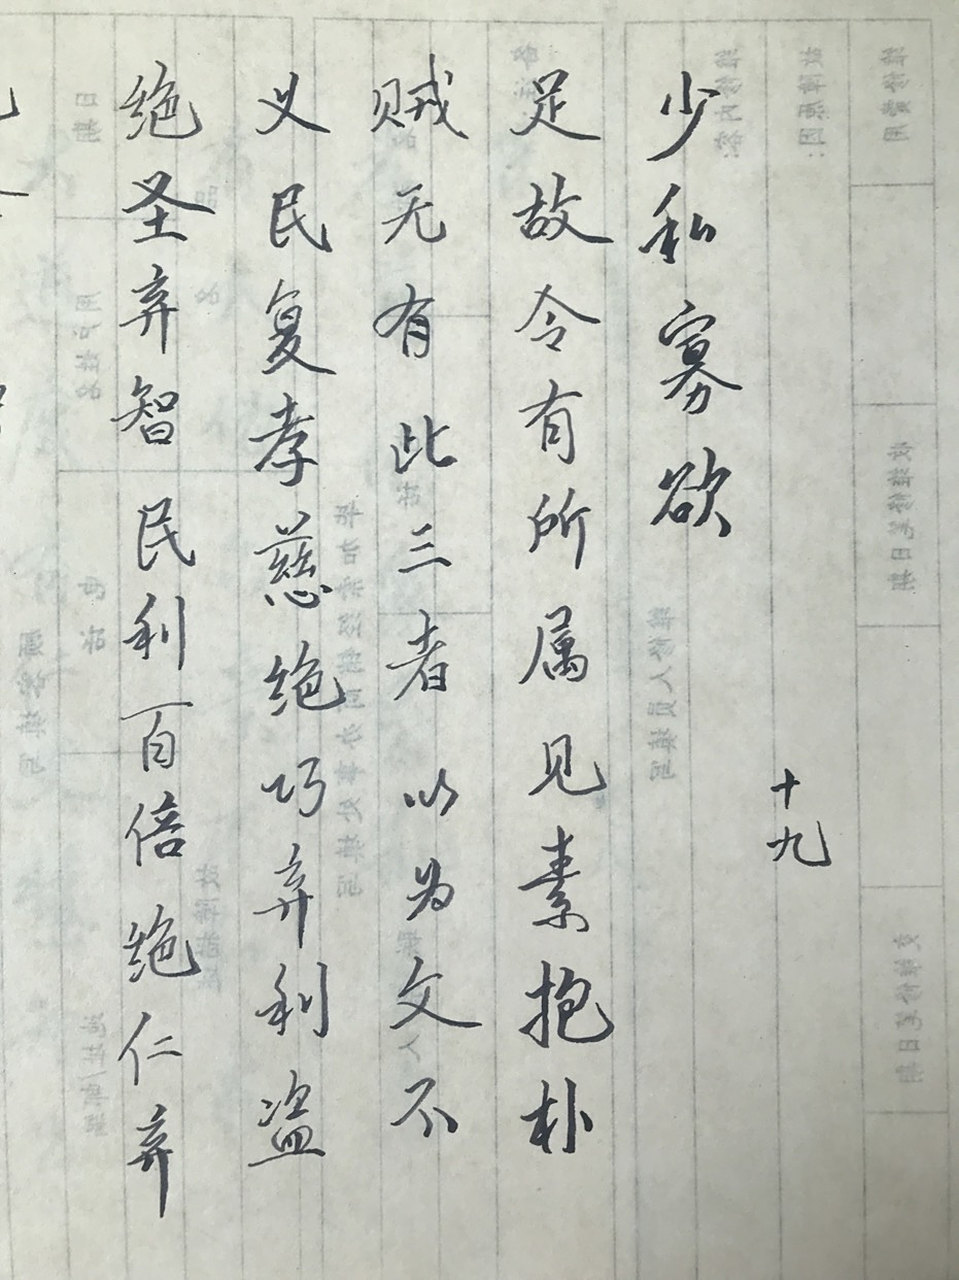 绝圣弃智民利百倍绝仁弃
义民复孝慈绝巧弃利盗
贼无有此三者以为文不
足故令有所属见素抱朴
少私寡欲
十九